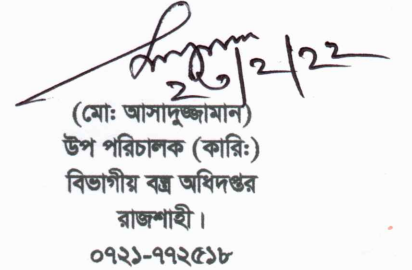 ২৩/২/২২
(মো: আসাদুজ্জামান)
উপ পরিচালক (কারি:)
বিভাগীয় বস্ত্র অধিদপ্তর
রাজশাহী।
০৭২১-৭৭২৫১৮